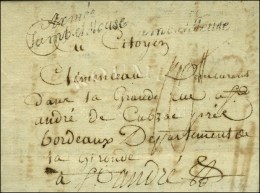 Armée
Sambre et Meuse
au Citoyen
Clemenceau
Dans la Grande rue a St
andré de Cubzac près
bordeaux Departement de
la Gironde
a St andré